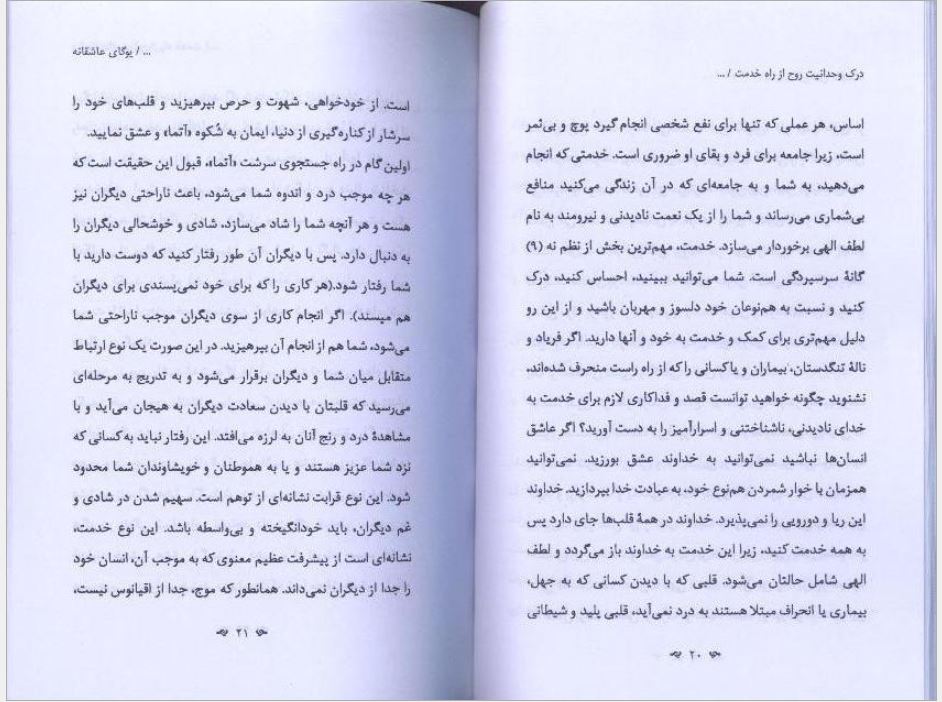 درک وحدانیت روح از راه خدمت / ...
اساس، هر عملی که تنها برای نفع شخصی انجام گیرد پوچ و بی‌ثمر
است، زیرا جامعه برای فرد و بقای او ضروری است. خدمتی که انجام
می‌دهید، به شما و به جامعه‌ای که در آن زندگی می‌کنید منافع
بی‌شماری می‌رساند و شما را از یک نعمت نادیدنی و نیرومند به نام
لطف الهی برخوردار می‌سازد. خدمت، مهم‌ترین بخش از نظم نه (۹)
گانهٔ سرسپردگی است. شما می‌توانید ببینید، احساس کنید، درک
کنید و نسبت به هم‌نوعان خود دلسوز و مهربان باشید و از این رو
دلیل مهم‌تری برای کمک و خدمت به خود و آنها دارید. اگر فریاد و
نالهٔ تنگدستان، بیماران و یا کسانی را که از راه راست منحرف شده‌اند،
نشنوید چگونه خواهید توانست قصد و فداکاری لازم برای خدمت به
خدای نادیدنی، ناشناختنی و اسرارآمیز را به دست آورید؟ اگر عاشق
انسان‌ها نباشید نمی‌توانید به خداوند عشق بورزید. نمی‌توانید
همزمان با خوار شمردن هم‌نوع خود، به عبادت خدا بپردازید. خداوند
این ریا و دورویی را نمی‌پذیرد. خداوند در همهٔ قلب‌ها جای دارد پس
به همه خدمت کنید، زیرا این خدمت به خداوند باز می‌گردد و لطف
الهی شامل حالتان می‌شود. قلبی که با دیدن کسانی که به جهل،
بیماری یا انحراف مبتلا هستند به درد نمی‌آید، قلبی پلید و شیطانی
۲۰
... / یوگای عاشقانه
است. از خودخواهی، شهوت و حرص بپرهیزید و قلب‌های خود را
سرشار از کناره‌گیری از دنیا، ایمان به شُکوه «آتما» و عشق نمایید.
اولین گام در راه جستجوی سرشت «آتما»، قبول این حقیقت است که
هر چه موجب درد و اندوه شما می‌شود، باعث ناراحتی دیگران نیز
هست و هر آنچه شما را شاد می‌سازد، شادی و خوشحالی دیگران را
به دنبال دارد. پس با دیگران آن طور رفتار کنید که دوست دارید با
شما رفتار شود.(هر کاری را که برای خود نمی‌پسندی برای دیگران
هم مپسند). اگر انجام کاری از سوی دیگران موجب ناراحتی شما
می‌شود، شما هم از انجام آن بپرهیزید. در این صورت یک نوع ارتباط
متقابل میان شما و دیگران برقرار می‌شود و به تدریج به مرحله‌ای
می‌رسید که قلبتان با دیدن سعادت دیگران به هیجان می‌آید و با
مشاهدهٔ درد و رنج آنان به لرزه می‌افتد. این رفتار نباید به کسانی که
نزد شما عزیز هستند و یا به هموطنان و خویشاوندان شما محدود
شود. این نوع قرابت نشانه‌ای از توهم است. سهیم شدن در شادی و
غم دیگران، باید خودانگیخته و بی‌واسطه باشد. این نوع خدمت،
نشانه‌ای است از پیشرفت عظیم معنوی که به موجب آن، انسان خود
را جدا از دیگران نمی‌داند. همانطور که موج، جدا از اقیانوس نیست،
۲۱